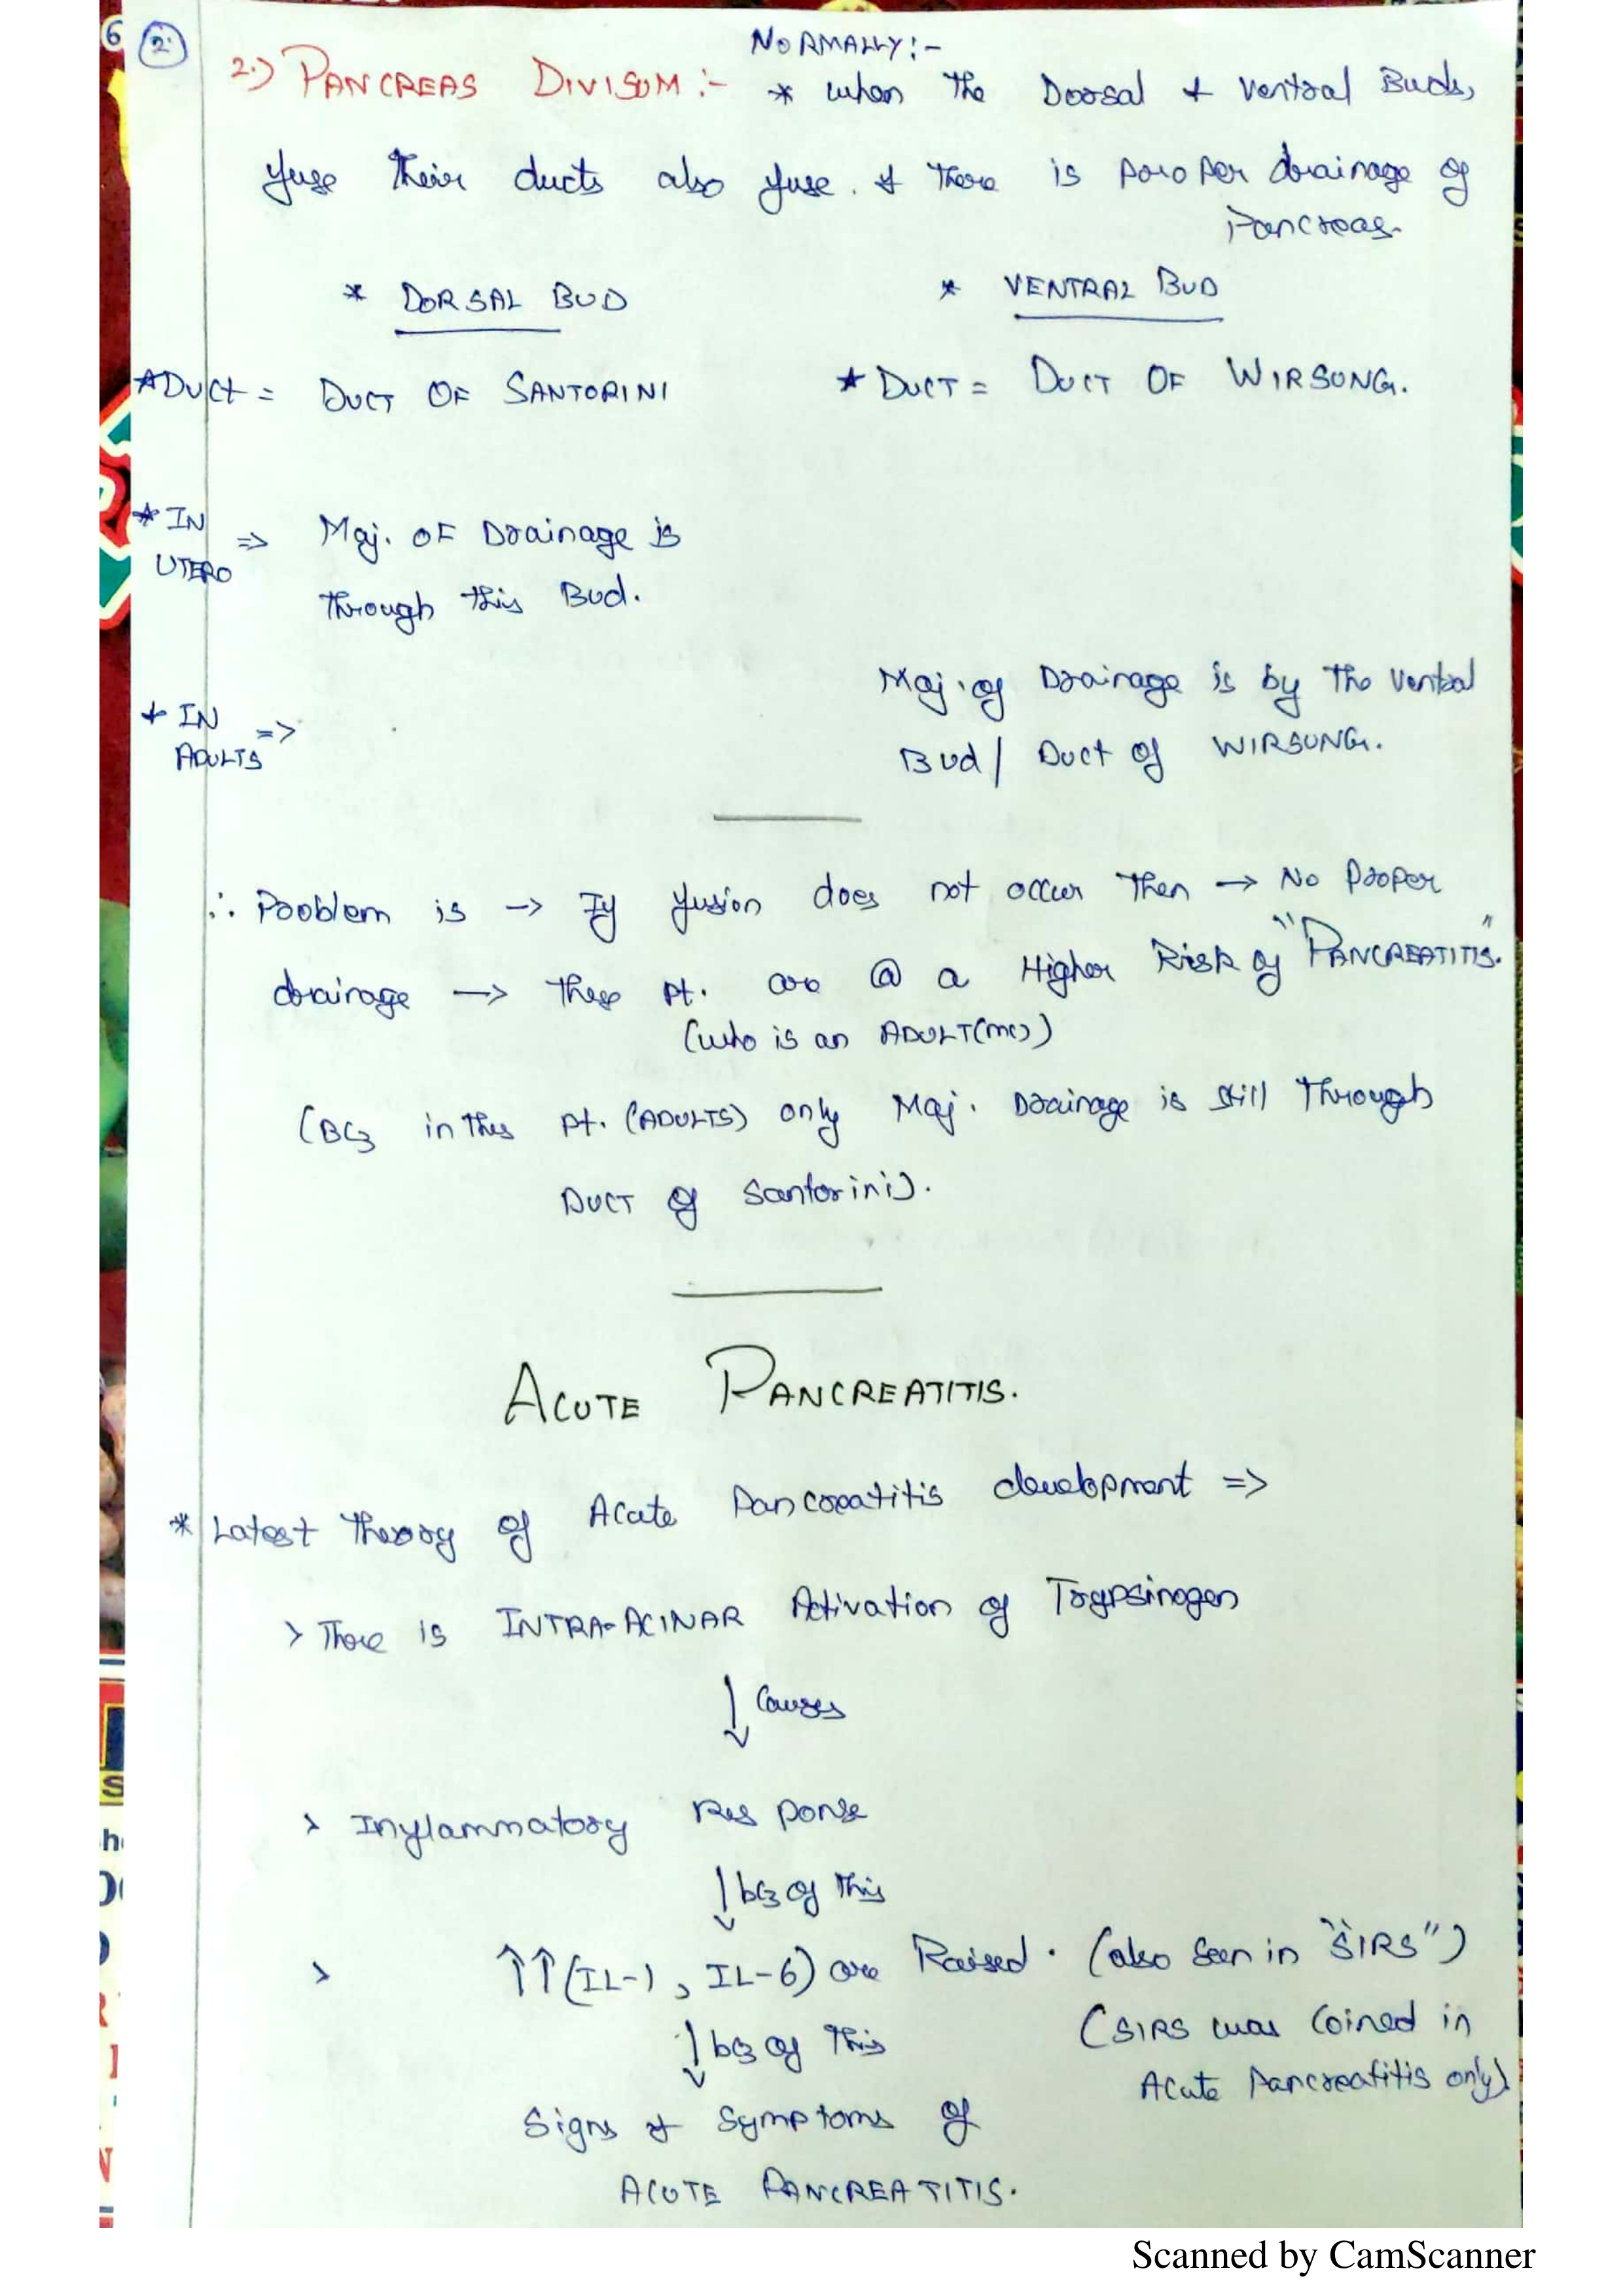 6
2.
NORMALLY:-
2.) PANCREAS DIVISUM :- * when The Dorsal & Ventral Buds,
fuse Their ducts also fuse. & There is proper drainage of
Pancreas.
* DORSAL BUD * VENTRAL BUD
* Duct = DUCT OF SANTORINI * DUCT = DUCT OF WIRSUNG.
* IN UTERO => Maj. OF Drainage is
Through this Bud.
Maj. of Drainage is by The Ventral
* IN ADULTS =>
Bud / Duct of WIRSUNG.
∴ Problem is → If fusion does not occur Then → No Proper
drainage → These Pt. are @ a Higher Risk of "PANCREATITIS".
(who is an ADULT(mc))
(BCz in this Pt. (ADULTS) only Maj. Drainage is still Through
DUCT of Santorini).
ACUTE PANCREATITIS.
* Latest Theory of Acute Pancreatitis development =>
> There is INTRA-ACINAR Activation of Trypsinogen
↓ Causes
> Inflammatory Response
↓ bcz of This
> ↑↑ (IL-1, IL-6) are Raised. (also Seen in "SIRS")
↓ bcz of This (SIRS was Coined in
Acute Pancreatitis only)
Signs & Symptoms of
ACUTE PANCREATITIS.
Scanned by CamScanner